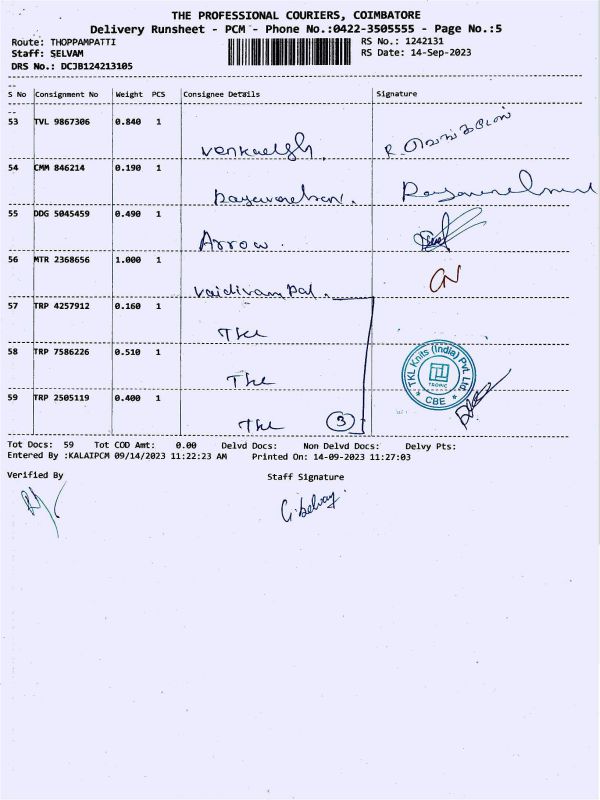 THE PROFESSIONAL COURIERS, COIMBATORE
Delivery Runsheet - PCM - Phone No.:0422-3505555 - Page No.:5
Route: THOPPAMPATTI RS No.: 1242131
Staff: SELVAM RS Date: 14-Sep-2023
DRS No.: DCJB124213105
S No Consignment No Weight PCS Consignee Details Signature
53 TVL 9867306 0.840 1
54 CMM 846214 0.190 1
55 DDG 5045459 0.490 1
Arrow.
56 MTR 2368656 1.000 1
57 TRP 4257912 0.160 1
58 TRP 7586226 0.510 1
TKL Knits (India) Pvt. Ltd.
TROPIC
* CBE *
59 TRP 2505119 0.400 1
3
Tot Docs: 59 Tot COD Amt: 0.00 Delvd Docs: Non Delvd Docs: Delvy Pts:
Entered By :KALAIPCM 09/14/2023 11:22:23 AM Printed On: 14-09-2023 11:27:03
Verified By Staff Signature